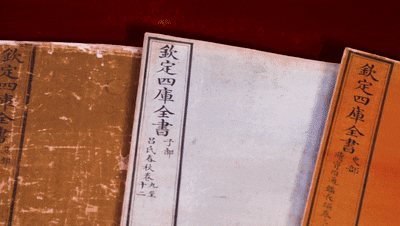 欽定四庫全書
部
欽定四庫全書
子部
呂氏春秋卷九至
十二
欽定四庫全書
史部